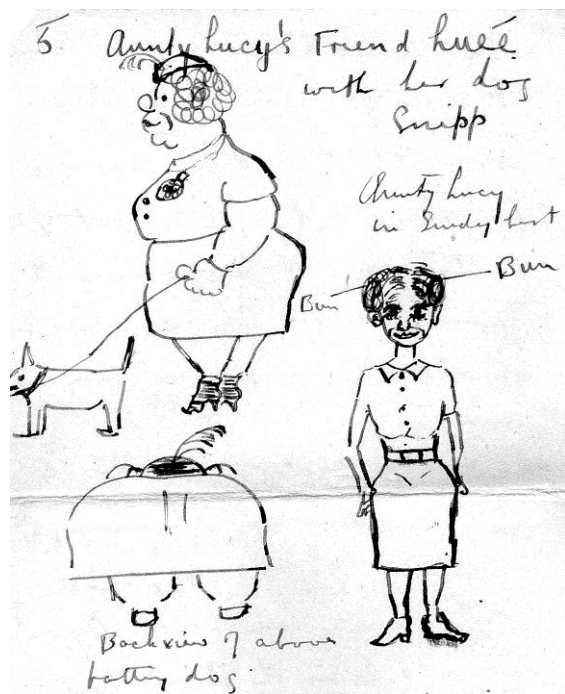 5 Aunty Lucy's Friend
with her dog
Snipp
Aunty Lucy
in Sunday best
Bun
Bun
Back view of above
patting dog